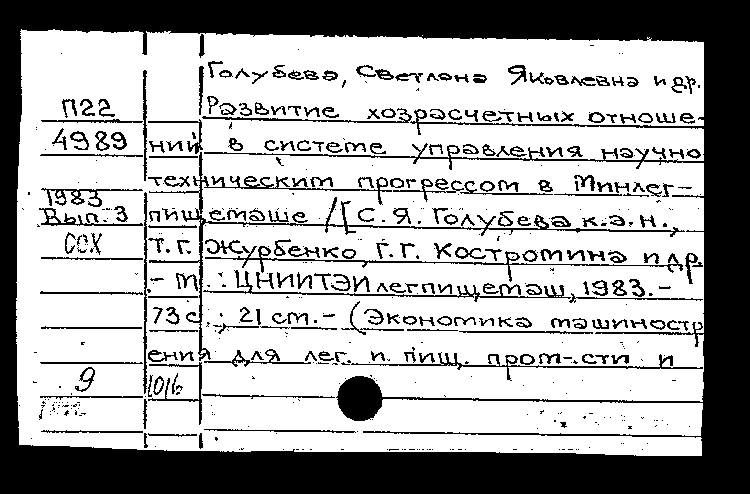 Голубева, Светлана Яковлевна и др.
П22 Развитие хозрасчетных отноше-
4989 ний в системе управления научно
техническим прогрессом в Минлег-
1983
Вып. 3 пищемаше /[С.Я. Голубева, к.э.н.,
ССХ Т.Г. Журбенко, Г.Г. Костромина и др.
.- М.: ЦНИИТЭИлегпищемаш, 1983.-
73 с.; 21 см.- (Экономика машиностр
ения для лег. и пищ. пром-сти и
9 1016